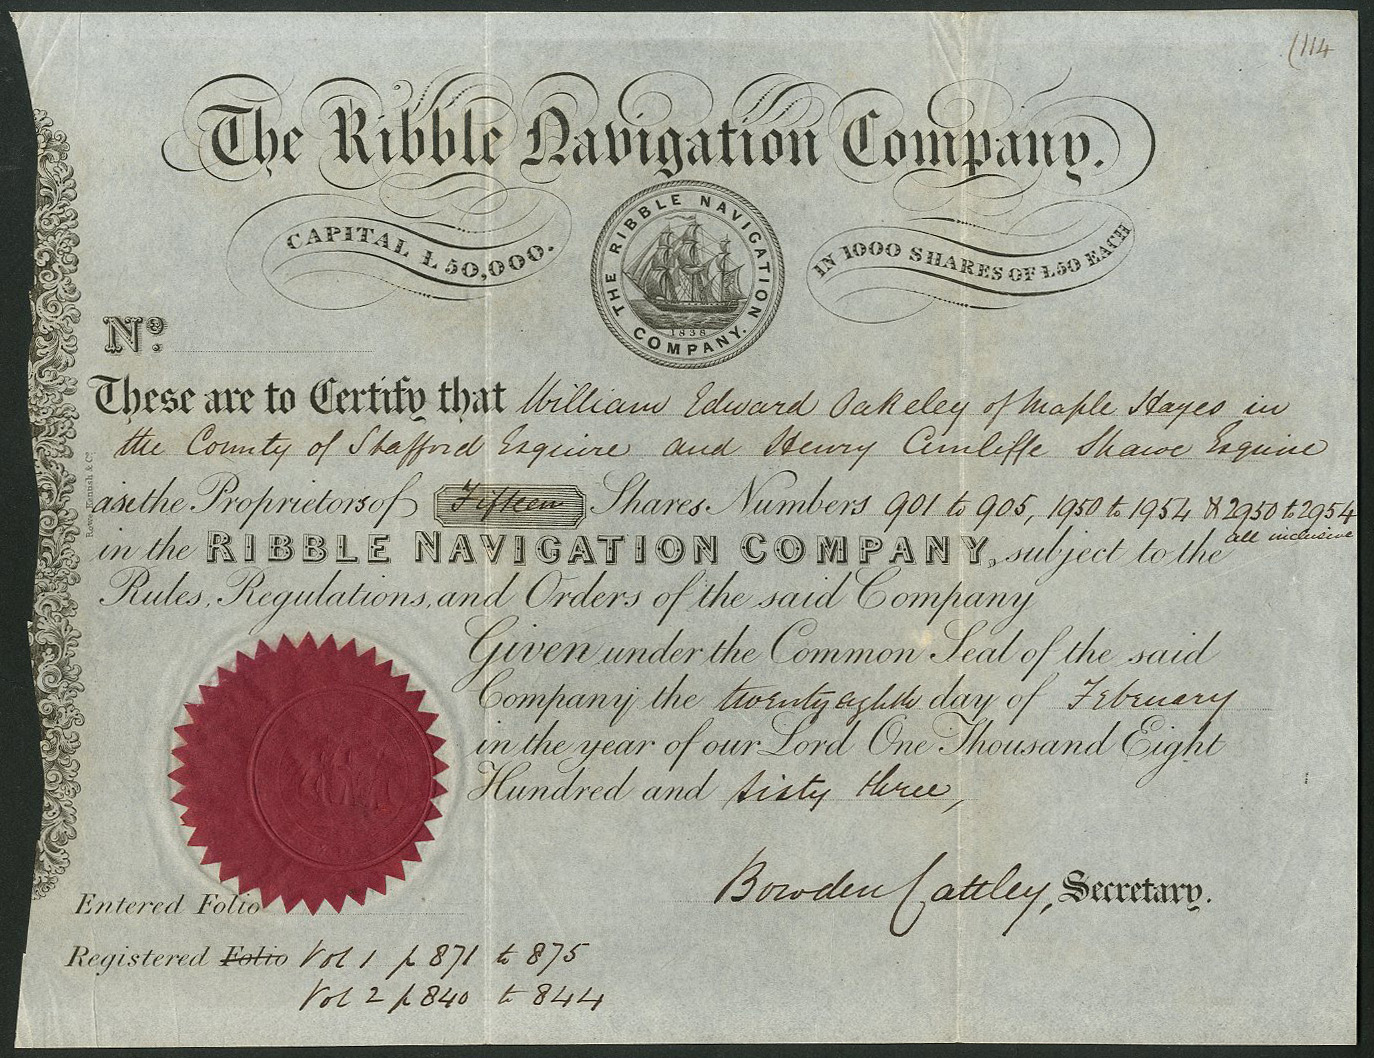 (114
The Ribble Navigation Company.
CAPITAL £50,000.
THE RIBBLE NAVIGATION COMPANY.
1838
IN 1000 SHARES OF £50 EACH
No.
These are to Certify that William Edward Oakeley of Maple Hayes in
the County of Stafford Esquire and Henry Cunliffe Shawe Esquire
are the Proprietors of Fifteen Shares Numbers 901 to 905, 1950 to 1954 & 2950 to 2954
all inclusive
in the RIBBLE NAVIGATION COMPANY, subject to the
Rules, Regulations, and Orders of the said Company
Given under the Common Seal of the said
Company the twenty eighth day of February
in the year of our Lord One Thousand Eight
Hundred and sixty three,
Bowden Cattley, Secretary.
Entered Folio
Registered Folio Vol 1 p 871 to 875
Vol 2 p 840 to 844